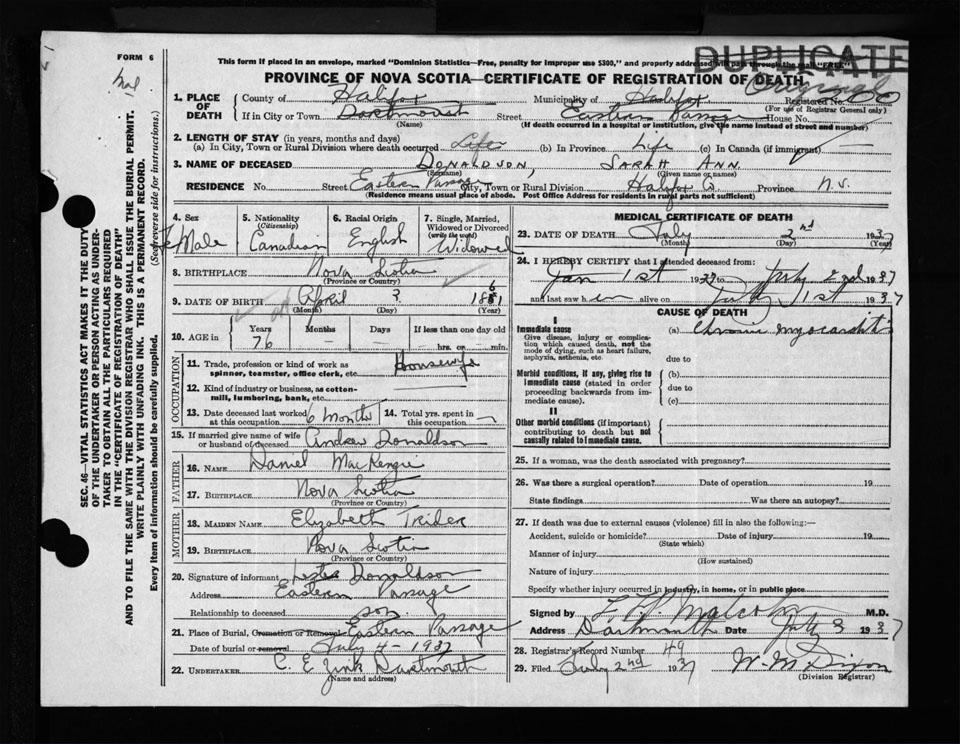 FORM 6
This form if placed in an envelope, marked "Dominion Statistics—Free, penalty for improper use $300," and properly addressed will pass through the mail "FREE"
DUPLICATE
PROVINCE OF NOVA SCOTIA—CERTIFICATE OF REGISTRATION OF DEATH
Original
1. PLACE OF DEATH
County of Halifax Municipality of Halifax Registered No.
(For use of Registrar General only)
If in City or Town Dartmouth Street Eastern Passage House No.
(Name) (If death occurred in a hospital or institution, give the name instead of street and number)
2. LENGTH OF STAY (in years, months and days)
(a) In City, Town or Rural Division where death occurred Life (b) In Province Life (c) In Canada (if immigrant) —
3. NAME OF DECEASED DONALDSON, SARAH ANN.
(Surname) (Given name or names)
RESIDENCE No. Street Eastern Passage City, Town or Rural Division Halifax Co. Province N.S.
(Residence means usual place of abode. Post Office Address for residents in rural parts not sufficient)
4. Sex 5. Nationality 6. Racial Origin 7. Single, Married,
(Citizenship) Widowed or Divorced
(write the word)
Female Canadian English Widowed
8. BIRTHPLACE Nova Scotia
(Province or Country)
9. DATE OF BIRTH April 3 1861
(Month) (Day) (Year)
10. AGE in Years Months Days If less than one day old
76 — — hrs. or min.
OCCUPATION
11. Trade, profession or kind of work as Housewife
spinner, teamster, office clerk, etc.
12. Kind of industry or business, as cotton-
mill, lumbering, bank, etc.
13. Date deceased last worked 6 Months 14. Total yrs. spent in —
at this occupation this occupation
15. If married give name of wife Andrew Donaldson
or husband of deceased
FATHER
16. NAME Daniel MacKenzie
17. BIRTHPLACE Nova Scotia
MOTHER
18. MAIDEN NAME Elizabeth Trider
19. BIRTHPLACE Nova Scotia
(Province or Country)
20. Signature of informant Lester Donaldson
Address Eastern Passage
Relationship to deceased son
21. Place of Burial, Cremation or Removal Eastern Passage
Date of burial or removal July 4 - 1937
22. UNDERTAKER C. E. Zink Dartmouth
(Name and address)
MEDICAL CERTIFICATE OF DEATH
23. DATE OF DEATH July 2nd 1937
(Month) (Day) (Year)
24. I HEREBY CERTIFY that I attended deceased from:
Jan 1st 1937 to July 2nd 1937
and last saw her alive on July 1st 1937
CAUSE OF DEATH
I
Immediate cause (a) Chronic myocarditis
Give disease, injury or complica-
tion which caused death, not the
mode of dying, such as heart failure,
asphyxia, asthenia, etc. due to
Morbid conditions, if any, giving rise to (b)
immediate cause (stated in order due to
proceeding backwards from im-
mediate cause). (c)
II
Other morbid conditions (if important)
contributing to death but not
causally related to immediate cause.
25. If a woman, was the death associated with pregnancy?
26. Was there a surgical operation? Date of operation 19
State findings Was there an autopsy?
27. If death was due to external causes (violence) fill in also the following:—
Accident, suicide or homicide? Date of injury 19
(State which)
Manner of injury
(How sustained)
Nature of injury
Specify whether injury occurred in industry, in home, or in public place
Signed by Malcolm M.D.
Address Dartmouth Date July 3 1937
28. Registrar's Record Number 49
29. Filed July 2nd 1937 W. M. Dixon
(Division Registrar)
SEC. 46—VITAL STATISTICS ACT MAKES IT THE DUTY
OF THE UNDERTAKER OR PERSON ACTING AS UNDER-
TAKER TO OBTAIN ALL THE PARTICULARS REQUIRED
IN THE "CERTIFICATE OF REGISTRATION OF DEATH"
AND TO FILE THE SAME WITH THE DIVISION REGISTRAR WHO SHALL ISSUE THE BURIAL PERMIT.
WRITE PLAINLY WITH UNFADING INK. THIS IS A PERMANENT RECORD.
Every item of information should be carefully supplied. (See reverse side for instructions.)